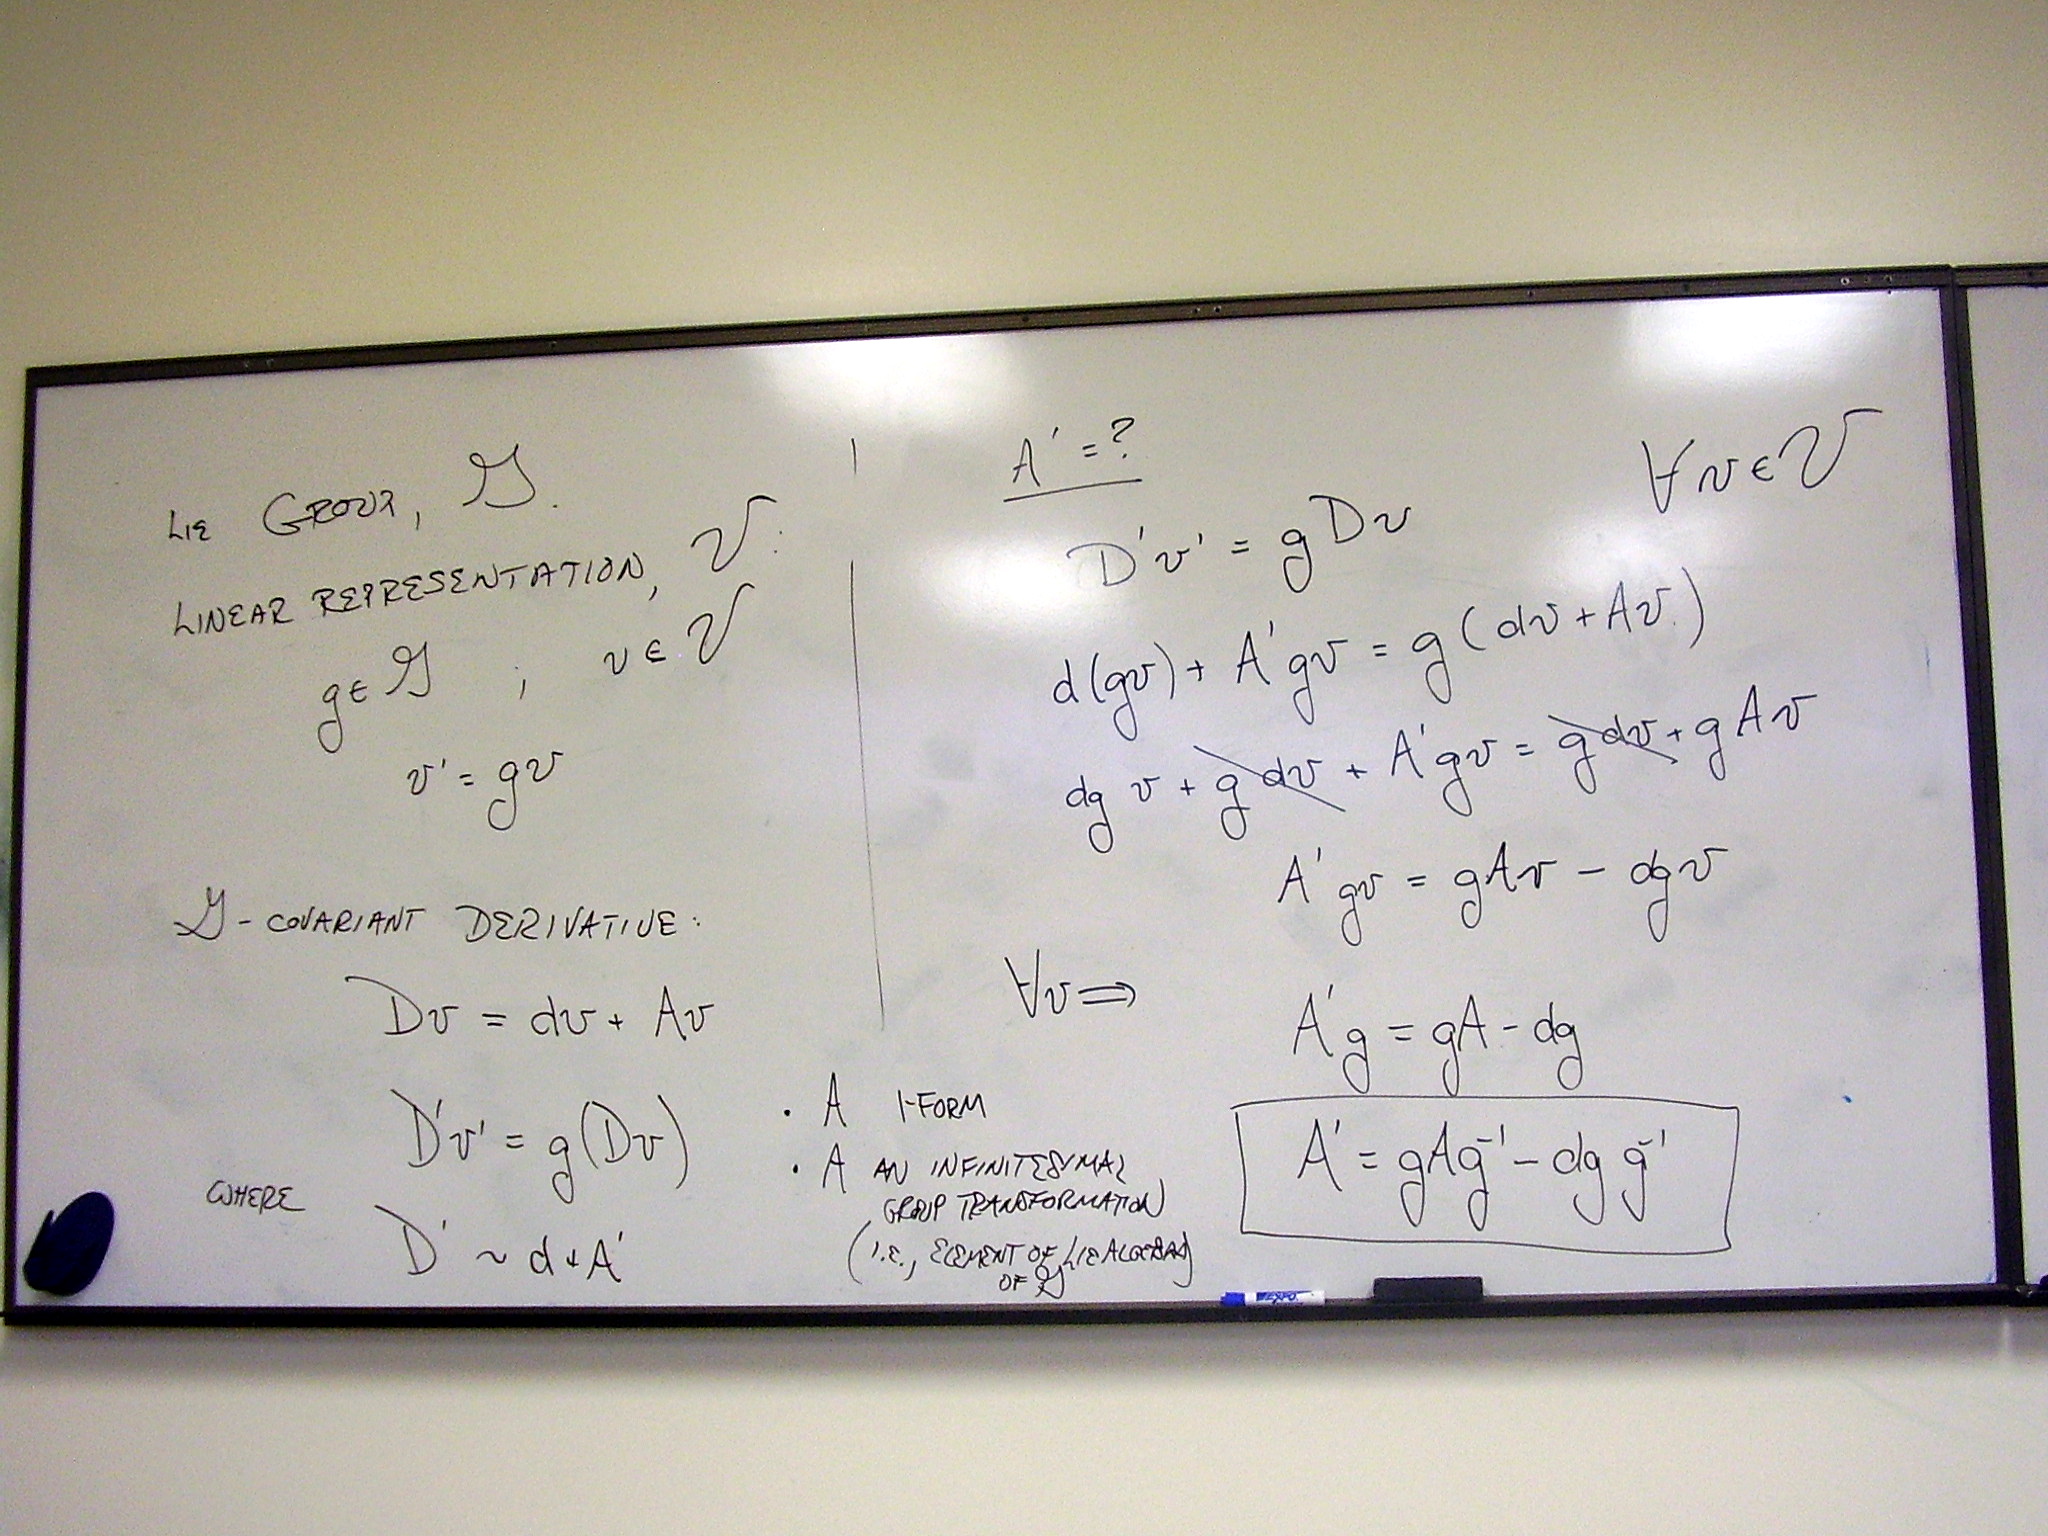 LIE GROUP, 𝒢.
LINEAR REPRESENTATION, 𝒱:
g ∈ 𝒢 ; v ∈ 𝒱
v' = gv
𝒢-COVARIANT DERIVATIVE:
Dv = dv + Av
D'v' = g(Dv)
WHERE
D' ~ d + A'
• A 1-FORM
• A AN INFINITESIMAL
GROUP TRANSFORMATION
(I.E., ELEMENT OF LIE ALGEBRA)
OF 𝒢
A' = ?
∀v ∈ 𝒱
D'v' = gDv
d(gv) + A'gv = g(dv + Av)
dg v + g dv + A'gv = g dv + gAv
A'gv = gAv - dg v
∀v ⇒
A'g = gA - dg
A' = gAg⁻¹ - dg g⁻¹
EXPO